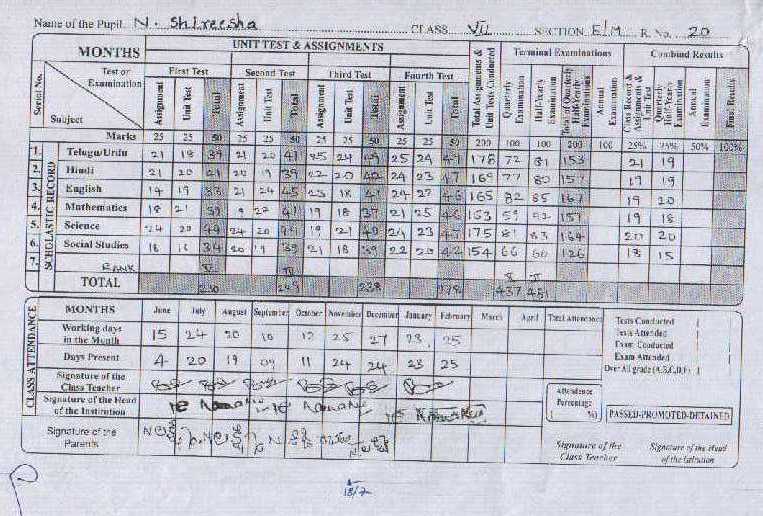 Name of the Pupil N. Shireesha CLASS VII SECTION E/M R. No. 20
MONTHS UNIT TEST & ASSIGNMENTS Total Assignments & Unit Tests Conducted Terminal Examinations Combind Results
Serial No. Test or Examination First Test Second Test Third Test Fourth Test
Subject Assignment Unit Test Total Assignment Unit Test Total Assignment Unit Test Total Assignment Unit Test Total Quarterly Examination Half-Yearly Examination Total of Quarterly Half-Yearly Examinations Annual Examination Class Record & Assignments & Unit Test Quarterly Half-Yearly Examination Annual Examination Final Results
Marks 25 25 50 25 25 50 25 25 50 25 25 50 200 100 100 200 100 25% 25% 50% 100%
SCHOLASTIC RECORD
1. Telugu/Urdu 21 18 39 21 20 41 25 24 49 25 24 178 72 81 153 21 19
2. Hindi 21 20 41 20 19 39 22 20 42 24 23 47 169 77 80 157 19 19
3. English 14 19 33 21 24 45 23 18 41 24 22 46 165 82 85 167 19 20
4. Mathematics 18 21 39 19 22 41 19 18 37 21 25 46 163 157 19 18
5. Science 24 20 44 24 20 44 19 21 40 24 23 47 175 81 83 164 20 20
6. Social Studies 18 16 34 20 19 39 21 18 39 22 20 42 154 66 60 126 18 15
7. RANK
TOTAL 230 249 437
CLASS ATTENDANCE
MONTHS June July August September October November December January February March April Total Attendance
Working days in the Month 15 24 20 10 12 25 27 23 25
Days Present 4 20 19 09 11 24 24 23 25
Signature of the Class Teacher
Signature of the Head of the Institution
Signature of the Parents
Tests Conducted [ ]
Tests Attended [ ]
Exam Conducted [ ]
Exam Attended [ ]
Over All grade (A,B,C,D,E) [ ]
Attendance Percentage ( %)
PASSED-PROMOTED-DETAINED
Signature of the Class Teacher
Signature of the Head of the Istitution
18/2